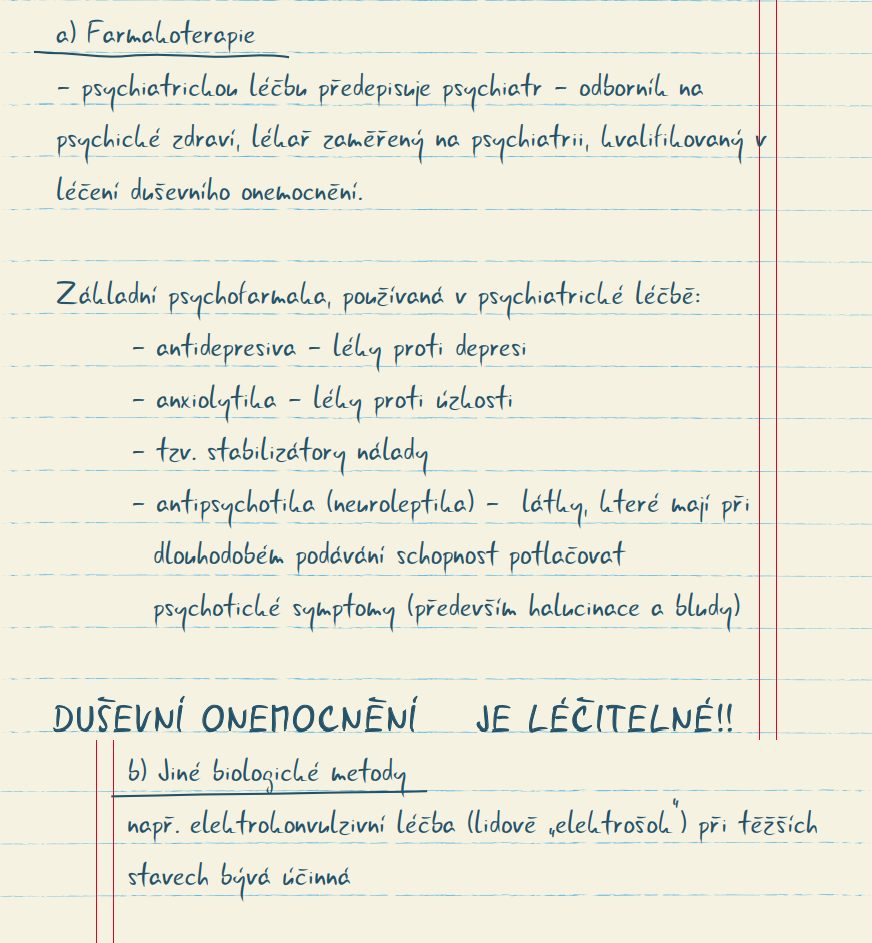 a) Farmakoterapie
– psychiatrickou léčbu předepisuje psychiatr – odborník na
psychické zdraví, lékař zaměřený na psychiatrii, kvalifikovaný v
léčení duševního onemocnění.
Základní psychofarmaka, používaná v psychiatrické léčbě:
– antidepresiva – léky proti depresi
– anxiolytika – léky proti úzkosti
– tzv. stabilizátory nálady
– antipsychotika (neuroleptika) – látky, které mají při
dlouhodobém podávání schopnost potlačovat
psychotické symptomy (především halucinace a bludy)
DUŠEVNÍ ONEMOCNĚNÍ JE LÉČITELNÉ!!
b) Jiné biologické metody
např. elektrokonvulzivní léčba (lidově „elektrošok“) při těžších
stavech bývá účinná